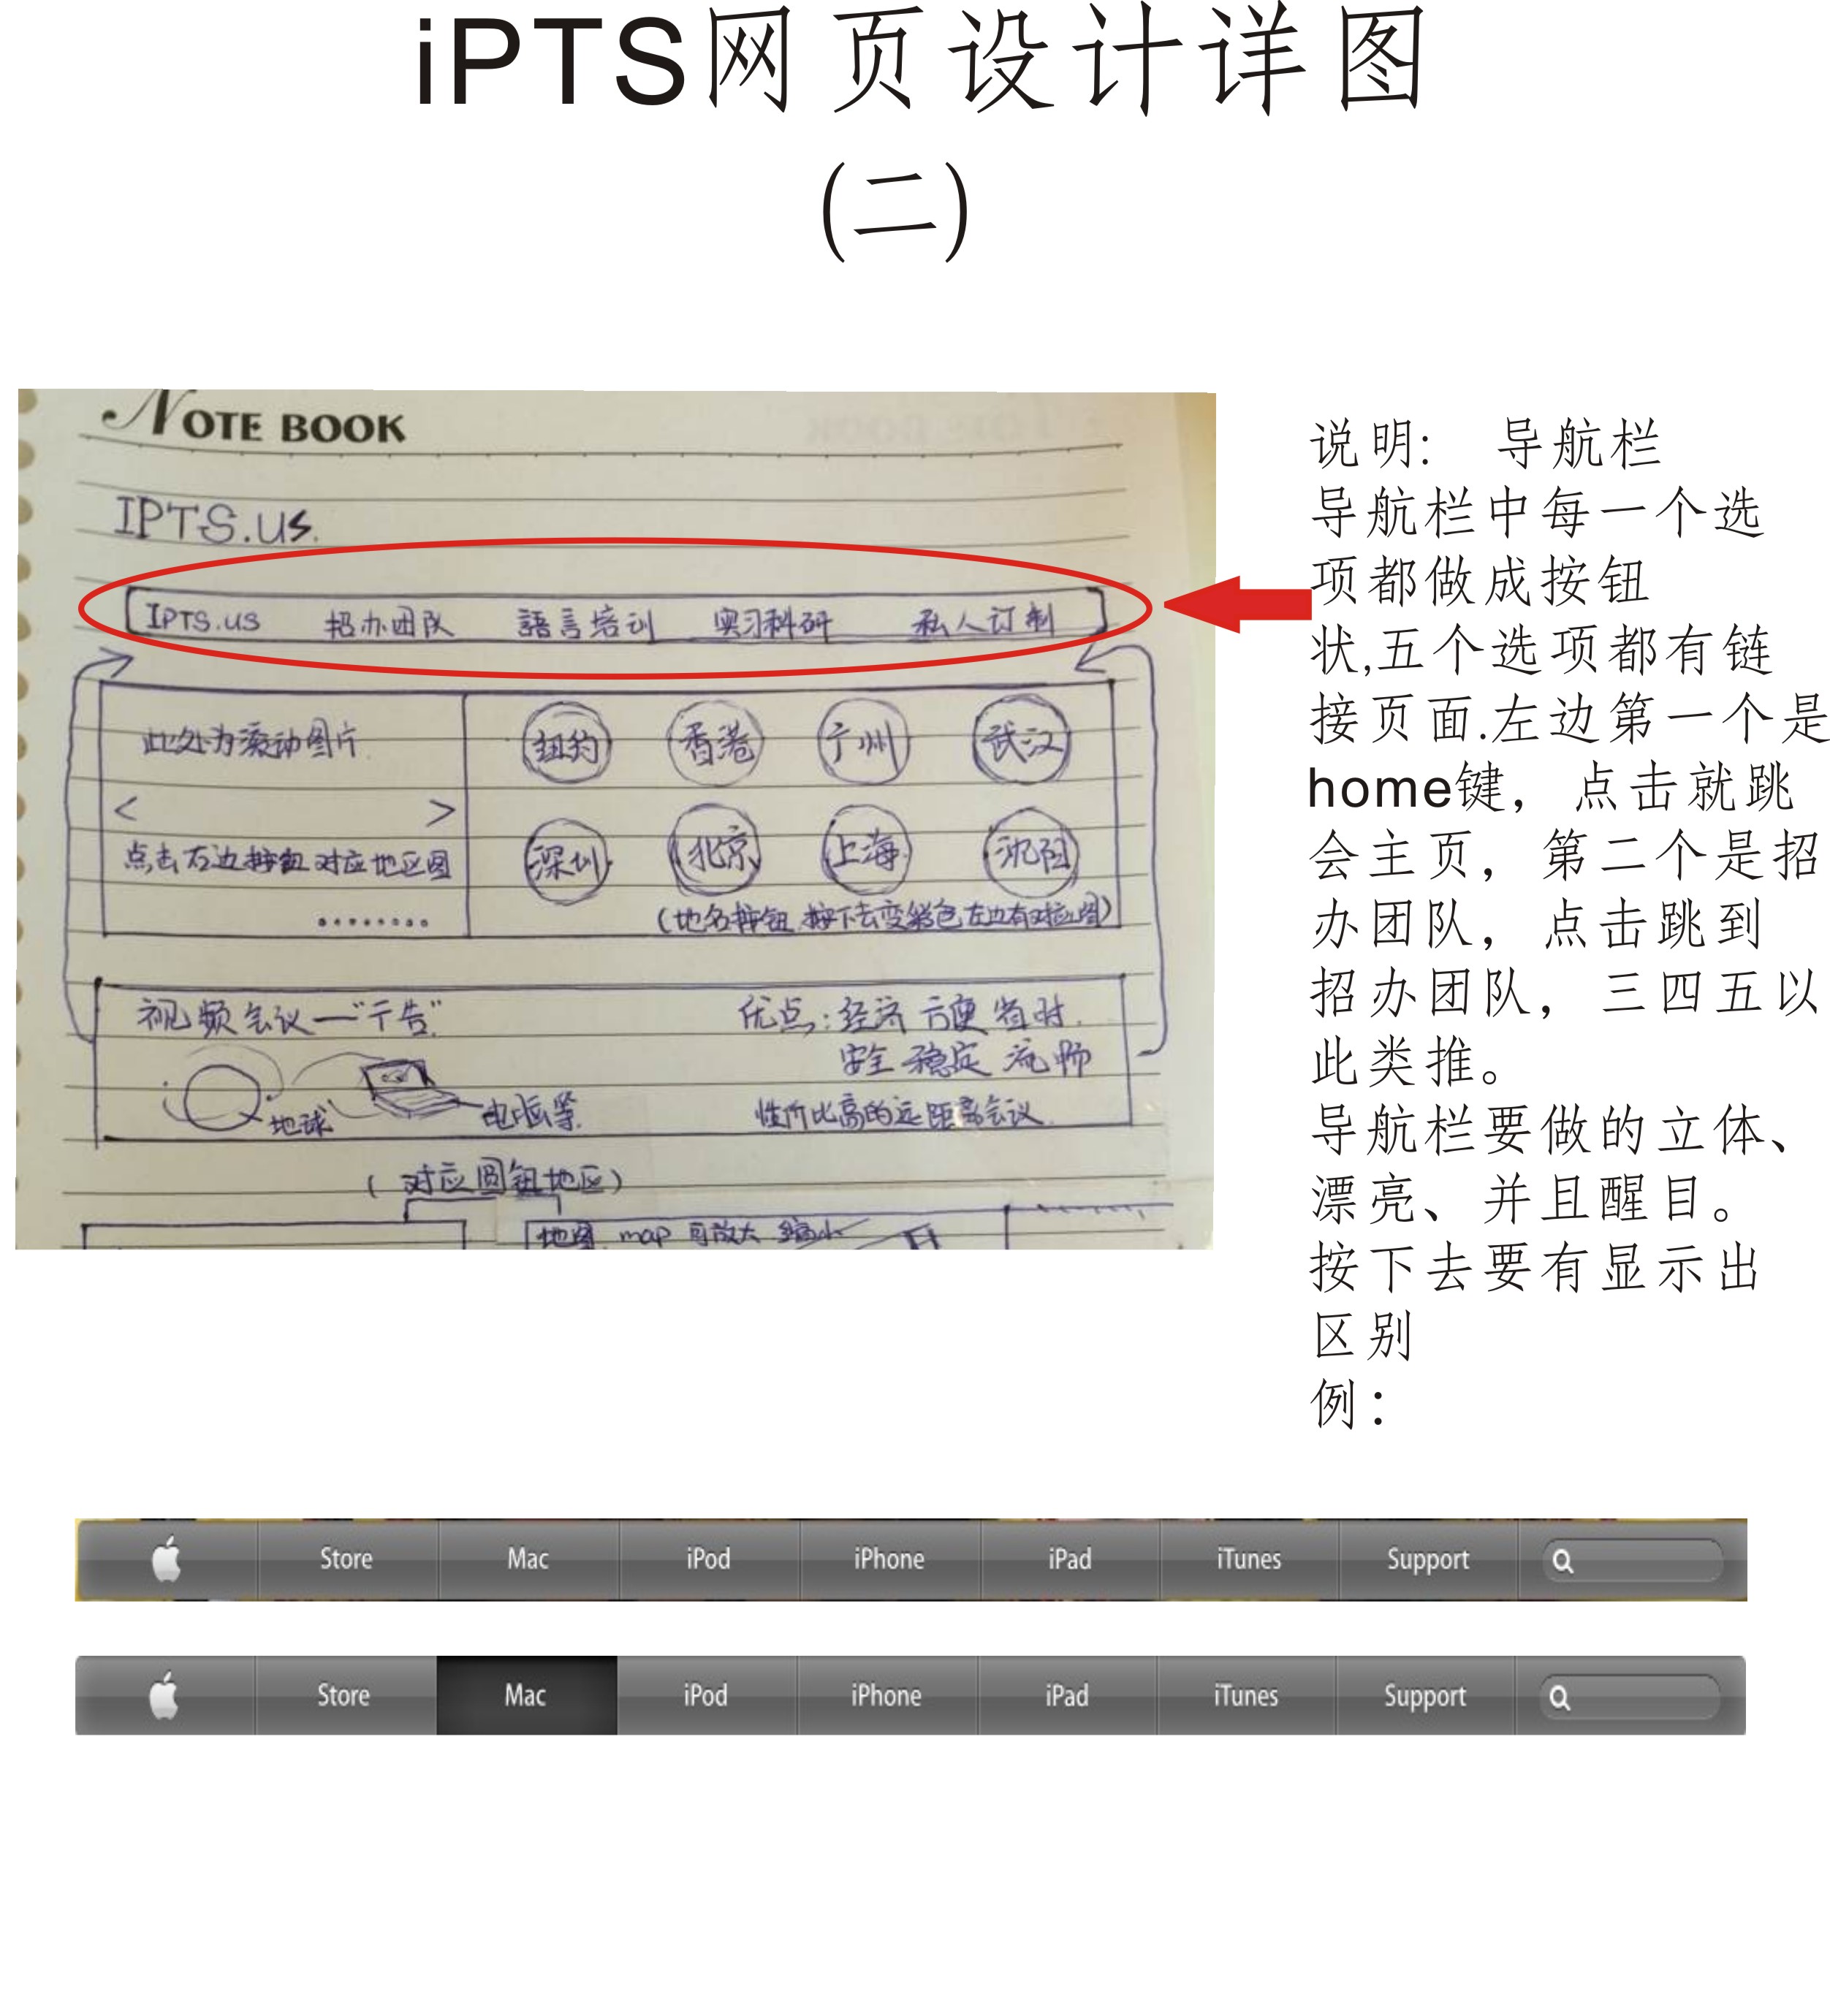 iPTS网页设计详图
(二)
NOTE BOOK
IPTS.us.
IPTS.us 招办团队 語言培训 实习科研 私人订制
此处为滚动图片.
纽约 香港 广州 武汉
< >
点击右边按钮 对应地区图
深圳 北京 上海 沈阳
(地名按钮 按下去变彩色 左边有对应图)
视频会议一"广告"
优点:经济 方便 省时.
安全 稳定 流畅
地球
电脑等.
性价比高的远距离会议.
(对应圆钮地区)
地图 map 可放大 缩小
说明: 导航栏
导航栏中每一个选
项都做成按钮
状,五个选项都有链
接页面.左边第一个是
home键，点击就跳
会主页，第二个是招
办团队，点击跳到
招办团队，三四五以
此类推。
导航栏要做的立体、
漂亮、并且醒目。
按下去要有显示出
区别
例：
Store Mac iPod iPhone iPad iTunes Support
Store Mac iPod iPhone iPad iTunes Support